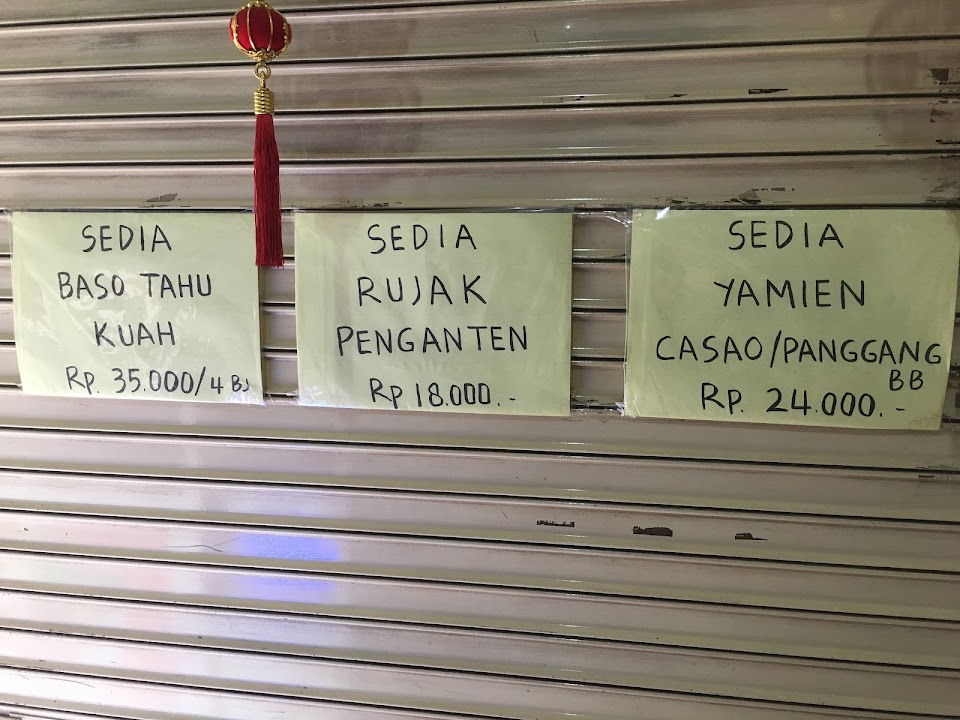 SEDIA
BASO TAHU
KUAH
Rp. 35.000/4 BJ
SEDIA
RUJAK
PENGANTEN
Rp 18.000.-
SEDIA
YAMIEN
CASAO/PANGGANG
BB
Rp. 24.000.-